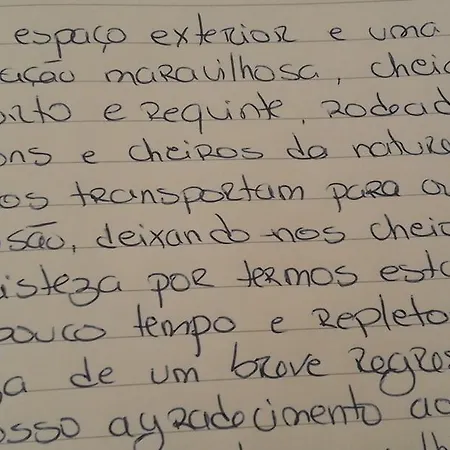 espaço exterior e uma
ação maravilhosa, cheio
orto e requinte, rodead
ons e cheiros da natura
os transportam para ou
são, deixando-nos cheio
isteza por termos esta
pouco tempo e repleto
a de um breve regres
osso agradecimento ao